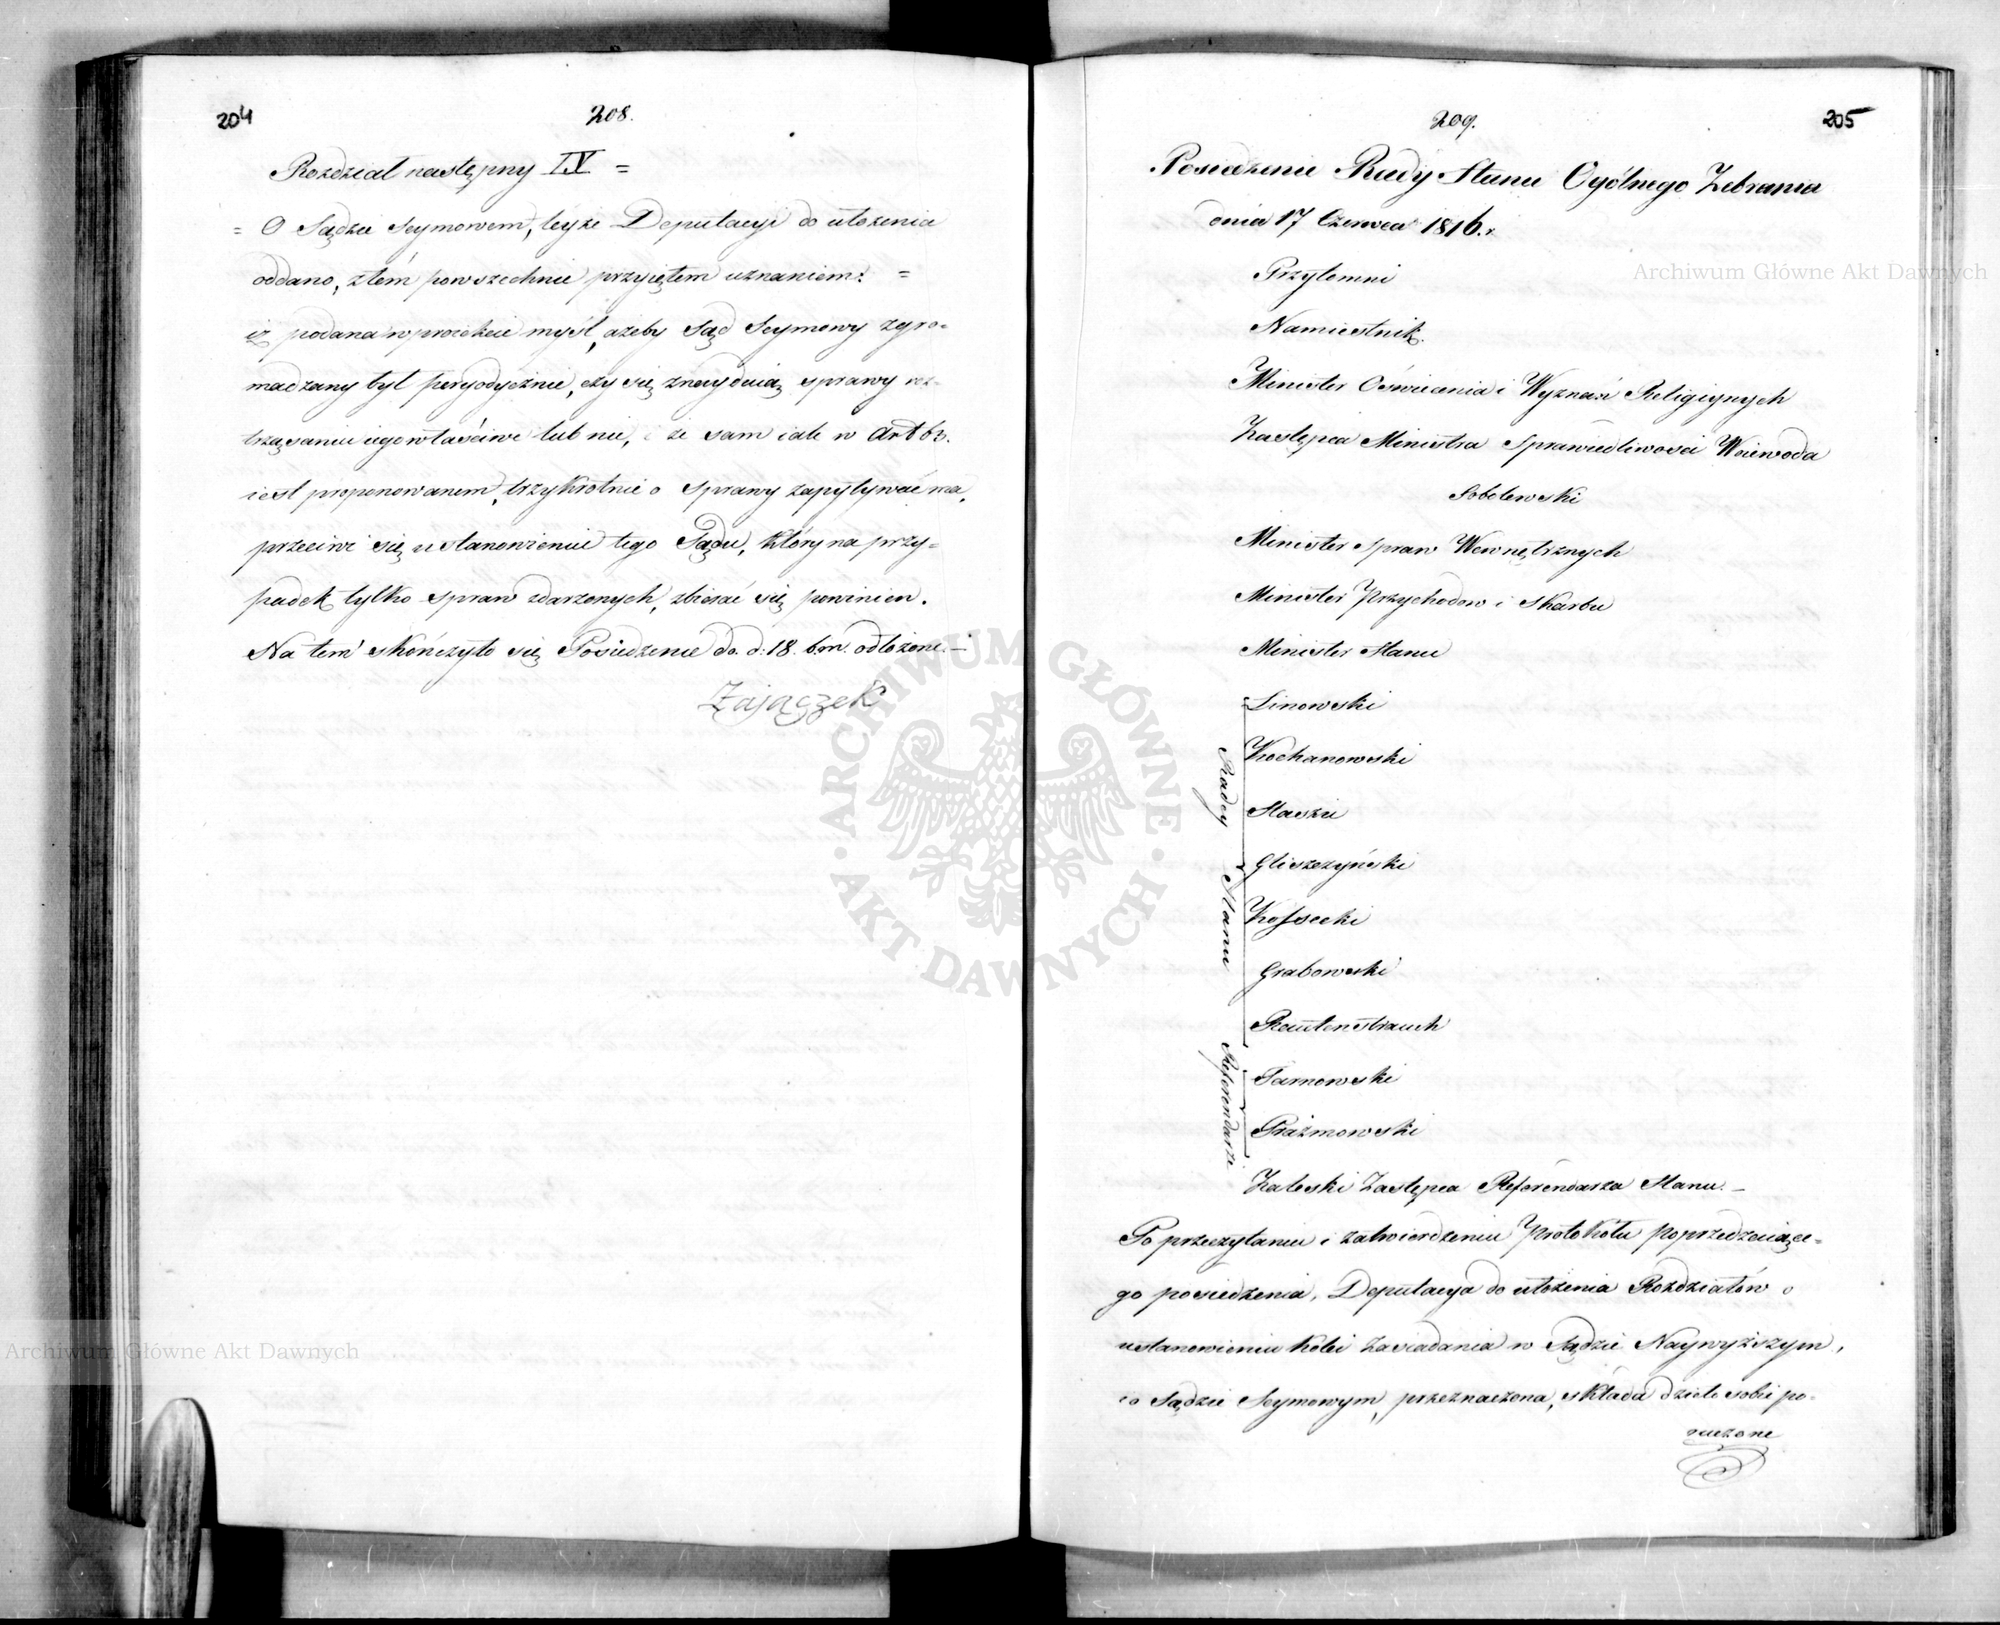 204
208.
Rozdział następny IV =
= O Sądzie Seymowem, teyże Deputacyi do ułożenia
oddano, z tém powszechnie przyiętem uznaniem: =
iż podana w proiekcie myśl, ażeby Sąd Seymowy zgro-
madzany był peryodycznie, czy się znayduią sprawy roz-
trząsaniu iego właściwe lub nie, i że sam iak w Art 63.
iest proponowanem, trzykrotnie o sprawy zapytywać ma,
przeciwi się ustanowieniu tego Sądu, który na przy-
padek tylko spraw zdarzonych, zbierać się powinien.
Na tem skończyło się Posiedzenie do d: 18. b.m. odłożone.—
Zajączek
209.
205
Posiedzenie Rady Stanu Ogólnego Zebrania
dnia 17 Czerwca 1816.r.
Przytomni
Namiestnik.
Minister Oświecenia i Wyznań Religiynych
Zastępca Ministra Sprawiedliwości Woiewoda
Sobolewski
Minister Spraw Wewnętrznych
Minister Przychodow i Skarbu
Minister Stanu
Radcy Stanu
Linowski
Kochanowski
Staszic
Gliszczyński
Kossecki
Grabowski
Rautenstrauch
Referendarze
Tarnowski
Prażmowski
Zaleski Zastępca Referendarza Stanu.—
Po przeczytaniu i zatwierdzeniu Protokołu poprzedzaiące-
go posiedzenia, Deputacya do ułożenia Rozdziałów o
ustanowieniu kolei zasiadania w Sądzie Naywyższym,
i o Sądzie Seymowym, przeznaczona, składa dzieło sobie po-
ruczone
Archiwum Główne Akt Dawnych
Archiwum Główne Akt Dawnych
· ARCHIWUM GŁÓWNE · AKT DAWNYCH